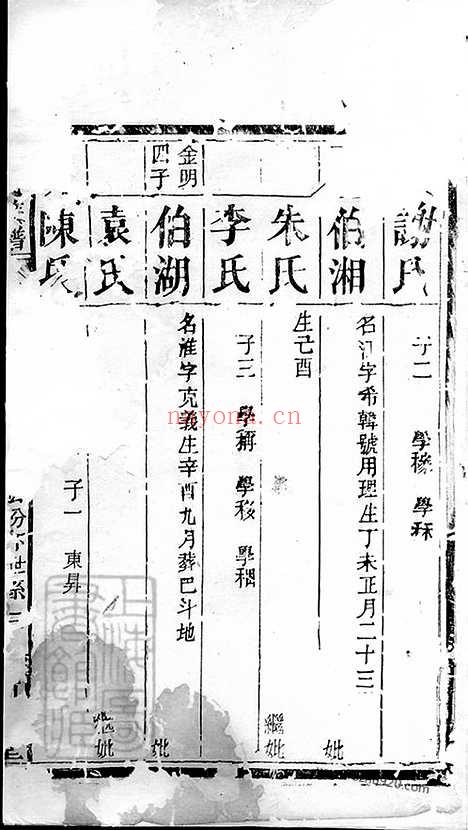 謝氏
子二 學穆 學秝
伯湘
名江字希韓號用理生丁未正月二十三
妣
朱氏
生己酉
繼妣
李氏
子三 學稱 學稷 學稠
金明
四子
伯湖
名淮字克義生辛酉九月葬巴斗地
妣
袁氏
繼妣
陳氏
子一 東昇
族譜
世系
nayona.cn
上海圖書館藏